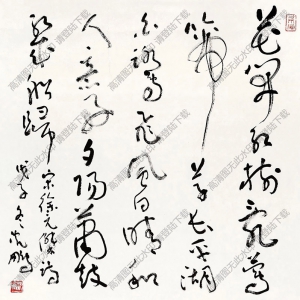 花开红树乱莺
啼草长平湖
白鹭飞风日晴和
人意好夕阳箫鼓
几船归
宋徐元杰诗
戊子冬沈鹏